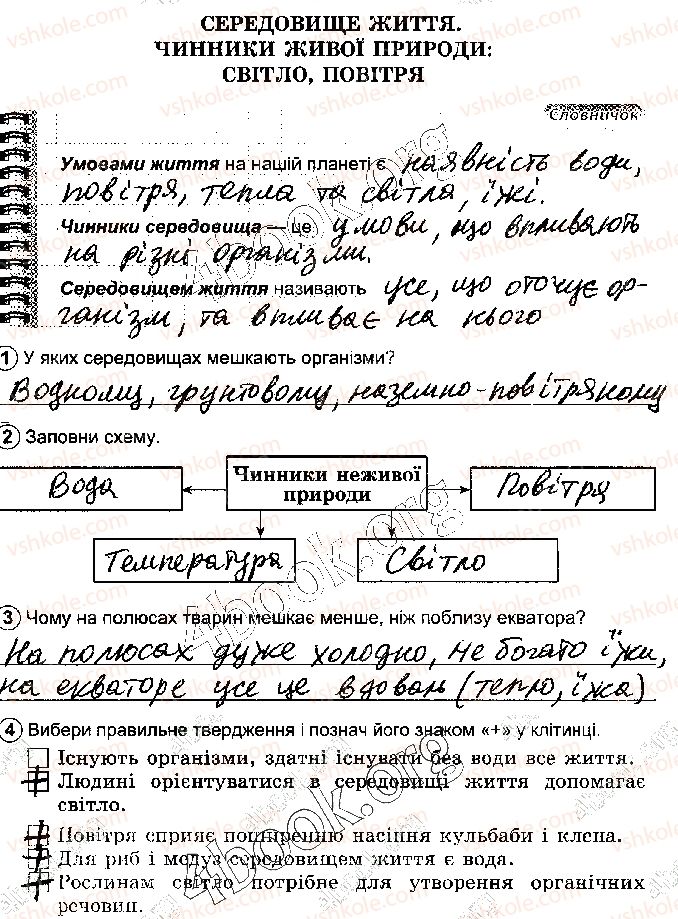 СЕРЕДОВИЩЕ ЖИТТЯ.
ЧИННИКИ ЖИВОЇ ПРИРОДИ:
СВІТЛО, ПОВІТРЯ
Словничок
Умовами життя на нашій планеті є наявність води,
повітря, тепла та світла, їжі.
Чинники середовища — це умови, що впливають
на різні організми.
Середовищем життя називають усе, що оточує ор-
ганізм, та впливає на нього
1 У яких середовищах мешкають організми?
Водному, грунтовому, наземно-повітряному
2 Заповни схему.
Вода
Чинники неживої
природи
Повітря
Температура
Світло
3 Чому на полюсах тварин мешкає менше, ніж поблизу екватора?
На полюсах дуже холодно, не богато їжи,
на екваторе усе це вдоваль (тепло, їжа)
4 Вибери правильне твердження і познач його знаком «+» у клітинці.
Існують організми, здатні існувати без води все життя.
+ Людині орієнтуватися в середовищі життя допомагає
світло.
+ Повітря сприяє поширенню насіння кульбаби і клена.
+ Для риб і медуз середовищем життя є вода.
+ Рослинам світло потрібне для утворення органічних
речовин.
vshkole.com
4book.org